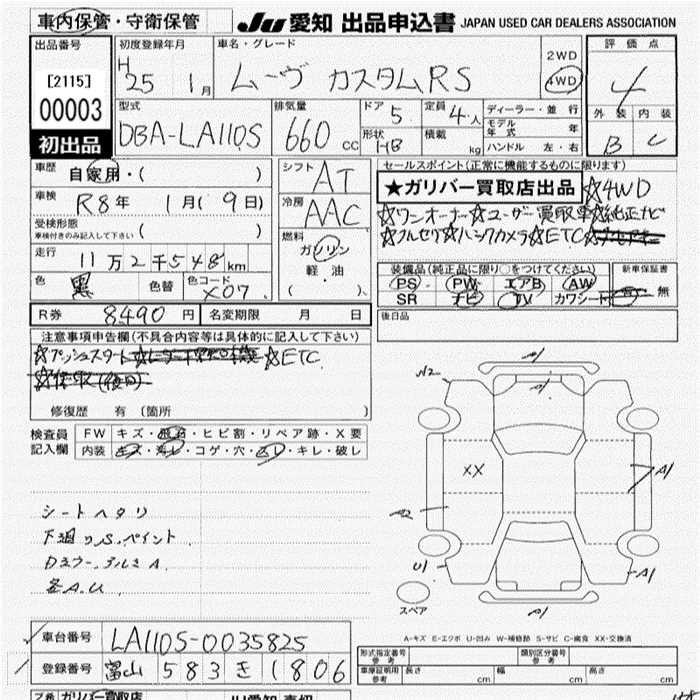 車内保管・守衛保管 JU 愛知 出品申込書 JAPAN USED CAR DEALERS ASSOCIATION
出品番号 初度登録年月 車名・グレード 評価点
[2115] H 25 年 1月 ムーヴ カスタムRS 2WD 4WD 4
00003 型式 排気量 ドア 5 定員 4人 ディーラー・並行 外装 内装
初出品 DBA-LA110S 660 CC 形状 HB 積載 kg モデル年式 年 ハンドル 左・右 B C
車歴 自家用・( ) シフト AT セールスポイント(正常に機能するものに限ります)
車検 R8年 1月(9日) 冷房 AAC ★ガリバー買取店出品 ☆4WD
☆ワンオーナー☆ユーザー買取車☆純正ナビ
受検形態 車検付きのみ記入して下さい ( ) 燃料 ガソリン ☆フルセグ☆バックカメラ☆ETC
走行 11万2千548km 軽油 装備品(純正品に限り○をつけてください) 新車保証書
色 黒 色替 色コード X07 ( ) PS PW エアB AW 有・無
SR ナビ TV カワシート
R券 8490円 名変期限 月 日 後日品
注意事項申告欄(不具合内容等は具体的に記入して下さい)
☆プッシュスタート ☆ETC
修復歴 有(箇所 )
検査員 FW キズ・飛石・ヒビ割・リペア跡・X要
記入欄 内装 キズ・汚レ・コゲ・穴・スレ・キレ・破レ
A1
A2
A1
XX
A1
A2
U1
A1
A1
スペア
シートヘタリ
下廻りS.ペイント
Dミラー.アルミA
各A.U
A-キズ E-エクボ U-凹み W-補修跡 S-サビ C-腐食 XX-交換済
車台番号 LA110S-0035825
登録番号 富山 583 き 1806
形式指定番号 参考 類別区分番号 参考
車庫証明用 参考 長さ cm 幅 cm 高さ cm
ガリバー買取店